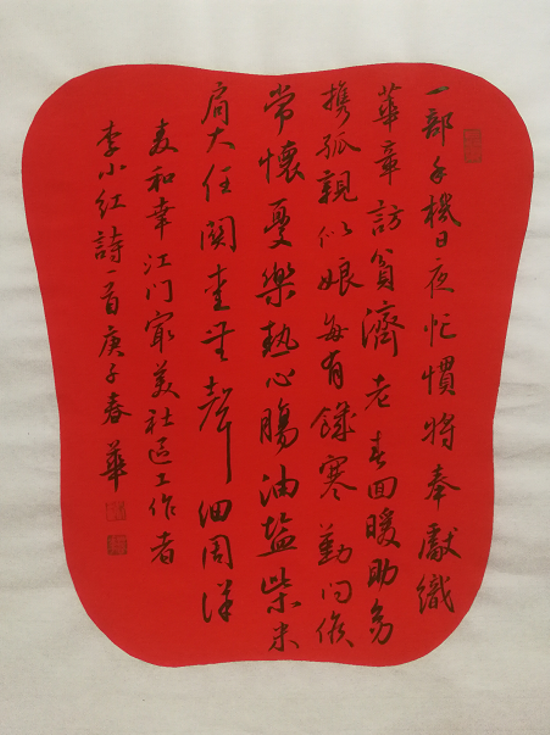 一部手機日夜忙慣將奉獻織
華章訪貧濟老春回暖助幼
携孤親似娘每有饑寒勤问候
常懷憂樂熱心腸油盐柴米
肩大任關愛無聲细周详
麦和幸江门最美社區工作者
李小红詩一首庚子春華